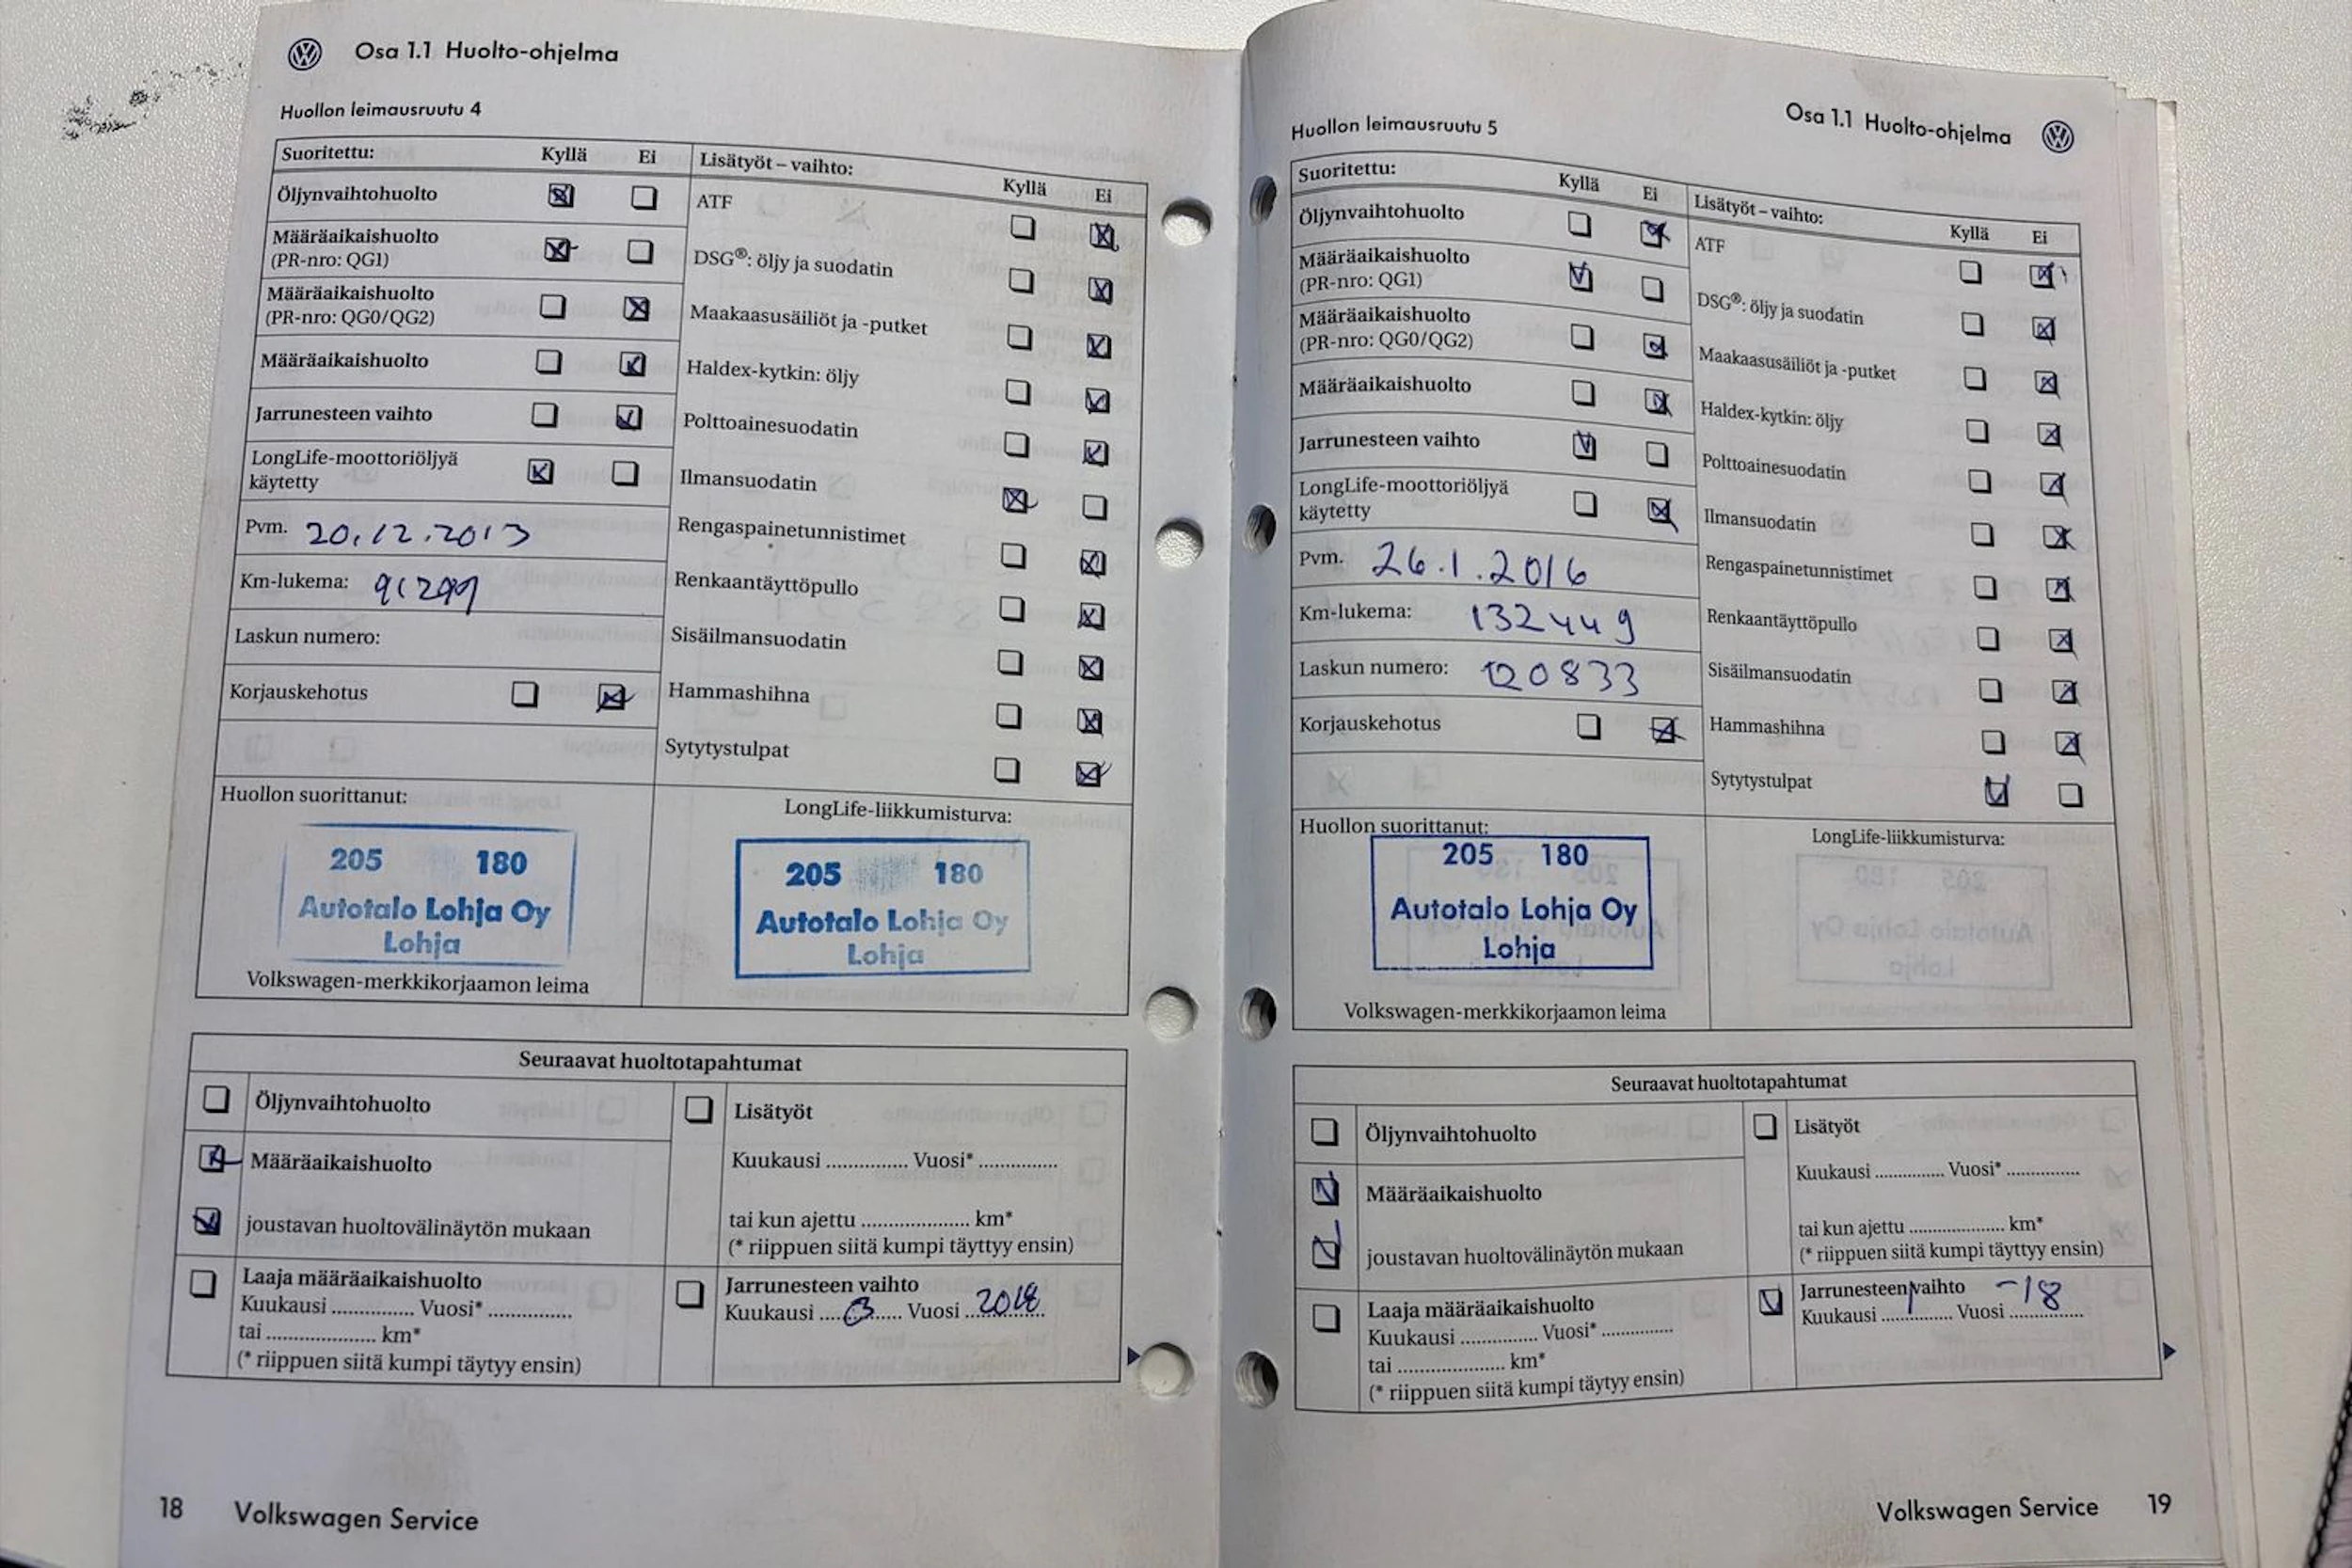 Osa 1.1 Huolto-ohjelma
Huollon leimausruutu 4
Suoritettu: Kyllä Ei
Öljynvaihtohuolto
Määräaikaishuolto
(PR-nro: QG1)
Määräaikaishuolto
(PR-nro: QG0/QG2)
Määräaikaishuolto
Jarrunesteen vaihto
LongLife-moottoriöljyä
käytetty
Pvm. 20.12.2013
Km-lukema: 91299
Laskun numero:
Korjauskehotus
Lisätyöt – vaihto: Kyllä Ei
ATF
DSG®: öljy ja suodatin
Maakaasusäiliöt ja -putket
Haldex-kytkin: öljy
Polttoainesuodatin
Ilmansuodatin
Rengaspainetunnistimet
Renkaantäyttöpullo
Sisäilmansuodatin
Hammashihna
Sytytystulpat
Huollon suorittanut:
205 180
Autotalo Lohja Oy
Lohja
Volkswagen-merkkikorjaamon leima
LongLife-liikkumisturva:
205 180
Autotalo Lohja Oy
Lohja
Seuraavat huoltotapahtumat
Öljynvaihtohuolto
Määräaikaishuolto
joustavan huoltovälinäytön mukaan
Laaja määräaikaishuolto
Kuukausi ............... Vuosi* ...............
tai .................... km*
(* riippuen siitä kumpi täytyy ensin)
Lisätyöt
Kuukausi ............... Vuosi* ..............
tai kun ajettu .................... km*
(* riippuen siitä kumpi täyttyy ensin)
Jarrunesteen vaihto
Kuukausi ............... Vuosi ...............
18 Volkswagen Service
Osa 1.1 Huolto-ohjelma
Huollon leimausruutu 5
Suoritettu: Kyllä Ei
Öljynvaihtohuolto
Määräaikaishuolto
(PR-nro: QG1)
Määräaikaishuolto
(PR-nro: QG0/QG2)
Määräaikaishuolto
Jarrunesteen vaihto
LongLife-moottoriöljyä
käytetty
Pvm. 26.1.2016
Km-lukema: 132449
Laskun numero: 120833
Korjauskehotus
Lisätyöt – vaihto: Kyllä Ei
ATF
DSG®: öljy ja suodatin
Maakaasusäiliöt ja -putket
Haldex-kytkin: öljy
Polttoainesuodatin
Ilmansuodatin
Rengaspainetunnistimet
Renkaantäyttöpullo
Sisäilmansuodatin
Hammashihna
Sytytystulpat
Huollon suorittanut:
205 180
Autotalo Lohja Oy
Lohja
Volkswagen-merkkikorjaamon leima
LongLife-liikkumisturva:
Seuraavat huoltotapahtumat
Öljynvaihtohuolto
Määräaikaishuolto
joustavan huoltovälinäytön mukaan
Laaja määräaikaishuolto
Kuukausi ............... Vuosi* ..............
tai .................... km*
(* riippuen siitä kumpi täytyy ensin)
Lisätyöt
Kuukausi .............. Vuosi* ...............
tai kun ajettu .................... km*
(* riippuen siitä kumpi täyttyy ensin)
Jarrunesteen vaihto
Kuukausi 1 Vuosi -18
Volkswagen Service 19